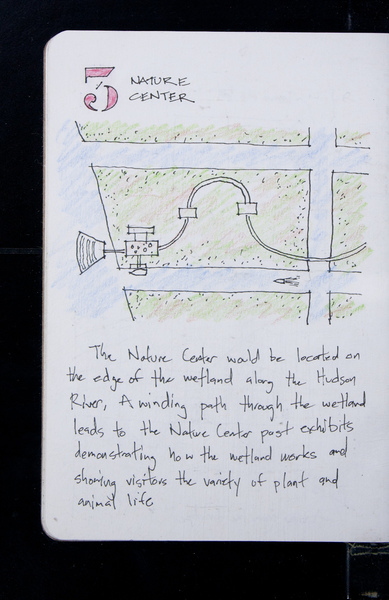 5 NATURE
CENTER
The Nature Center would be located on
the edge of the wetland along the Hudson
River, A winding path through the wetland
leads to the Nature Center past exhibits
demonstrating how the wetland works and
showing visitors the variety of plant and
animal life